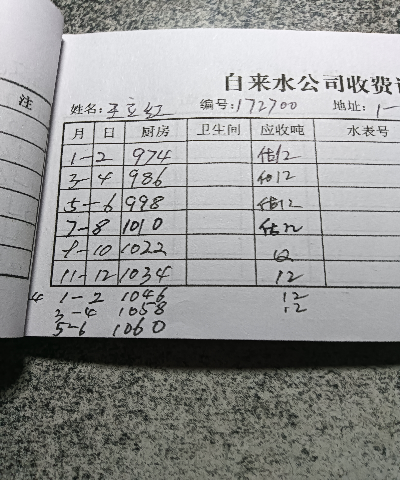 自来水公司收费
注
姓名: 王立红 编号: 172700 地址: 1-
月 日 厨房 卫生间 应收吨 水表号
1-2 974 估12
3-4 986 估12
5-6 998 估12
7-8 1010 估12
9-10 1022 12
11-12 1034 12
1-2 1046 12
3-4 1058 12
5-6 1060